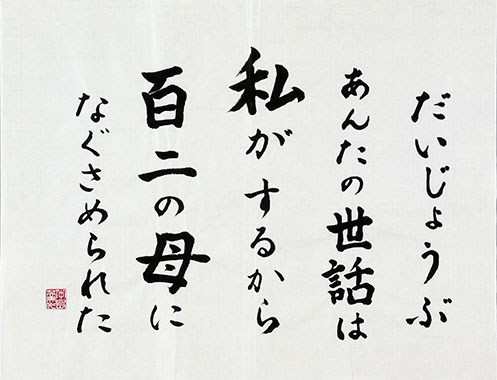 だいじょうぶ
あんたの世話は
私がするから
百二の母に
なぐさめられた